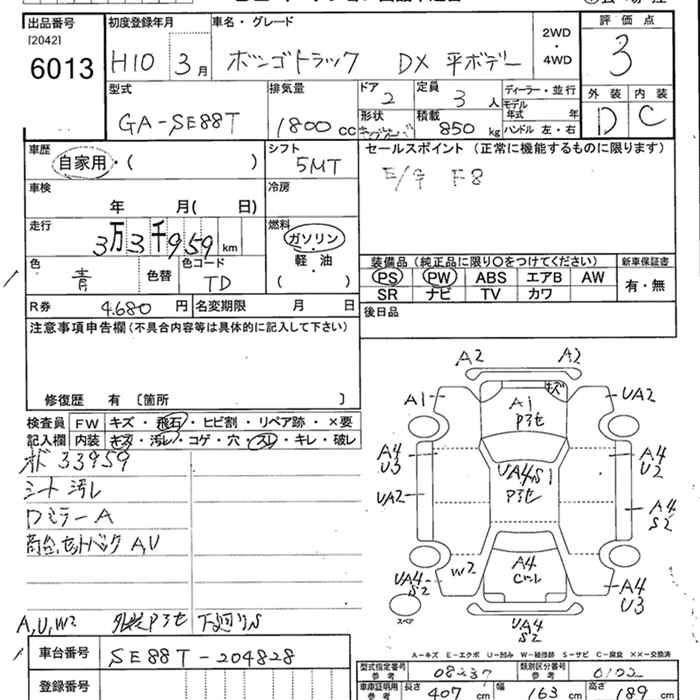 出品番号 初度登録年月 車名・グレード 評価点
[2042]
6013 H10 3月 ボンゴトラック DX 平ボデー 2WD・4WD 3
型式 排気量 ドア 定員 ディーラー・並行 外装 内装
GA-SE88T 1800cc 2 3人 モデル年式 年 D C
形状 積載 850kg ハンドル 左・右
車歴 シフト セールスポイント (正常に機能するものに限ります)
自家用・( ) 5MT E/G F8
車検 冷房
年 月( 日)
走行 燃料
3万3千959km ガソリン
軽・油
( )
色 色替 色コード 装備品 (純正品に限り○をつけてください) 新車保証書
青 TD PS PW ABS エアB AW 有・無
SR ナビ TV カワ
R券 4.680円 名変期限 月 日 後日品
注意事項申告欄(不具合内容等は具体的に記入して下さい)
修復歴 有 〔箇所 〕
検査員 FW キズ・飛石・ヒビ割・リペア跡・×要
記入欄 内装 キズ・汚レ・コゲ・穴・スレ・キレ・破レ
メド 33959
シート汚レ
ワミラーA
荷台セットバック A,U
A,U,W2 外装Pヨセ 下廻りS
A2 A2
A1 A1 キズ UA2
Pヨセ
A4 U3 A4 U2
UA4S1
UA2 Pヨセ A4 S2
W2 A4
UA4 S2 A4 U3
スペア UA4 S2
A-キズ E-エクボ U-凹ミ W-補修跡 S-サビ C-腐食 ××-交換済
車台番号 SE88T-204828
型式指定番号 参考 08237 類別区分番号 参考
登録番号
車庫証明用 参考 長さ 407cm 幅 163cm 高さ 189cm